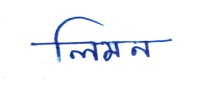 লিমন